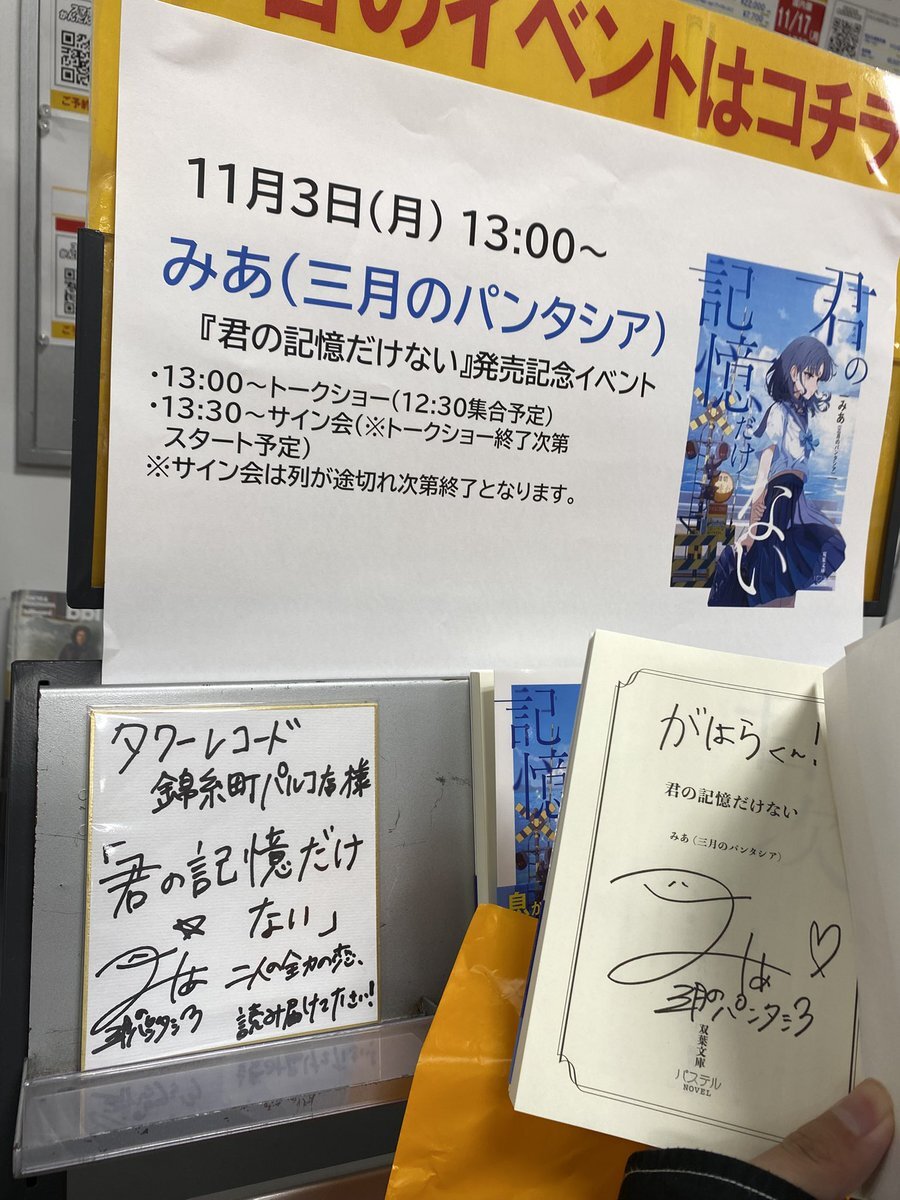 のイベントはコチラ
11/17
ご予約
11月3日(月) 13:00～
みあ(三月のパンタシア)
『君の記憶だけない』発売記念イベント
・13:00～トークショー(12:30集合予定)
・13:30～サイン会(※トークショー終了次第
スタート予定)
※サイン会は列が途切れ次第終了となります。
君の
記憶だけ
ない
みあ(三月のパンタシア)
タワーレコード
錦糸町パルコ店様
「君の記憶だけ
ない」
みあ
三月のパンタシア
二人の全力の恋、
読み届けて下さい!
記憶
がはらくん～!
君の記憶だけない
みあ(三月のパンタシア)
みあ
三月のパンタシア
双葉文庫
パステル
NOVEL